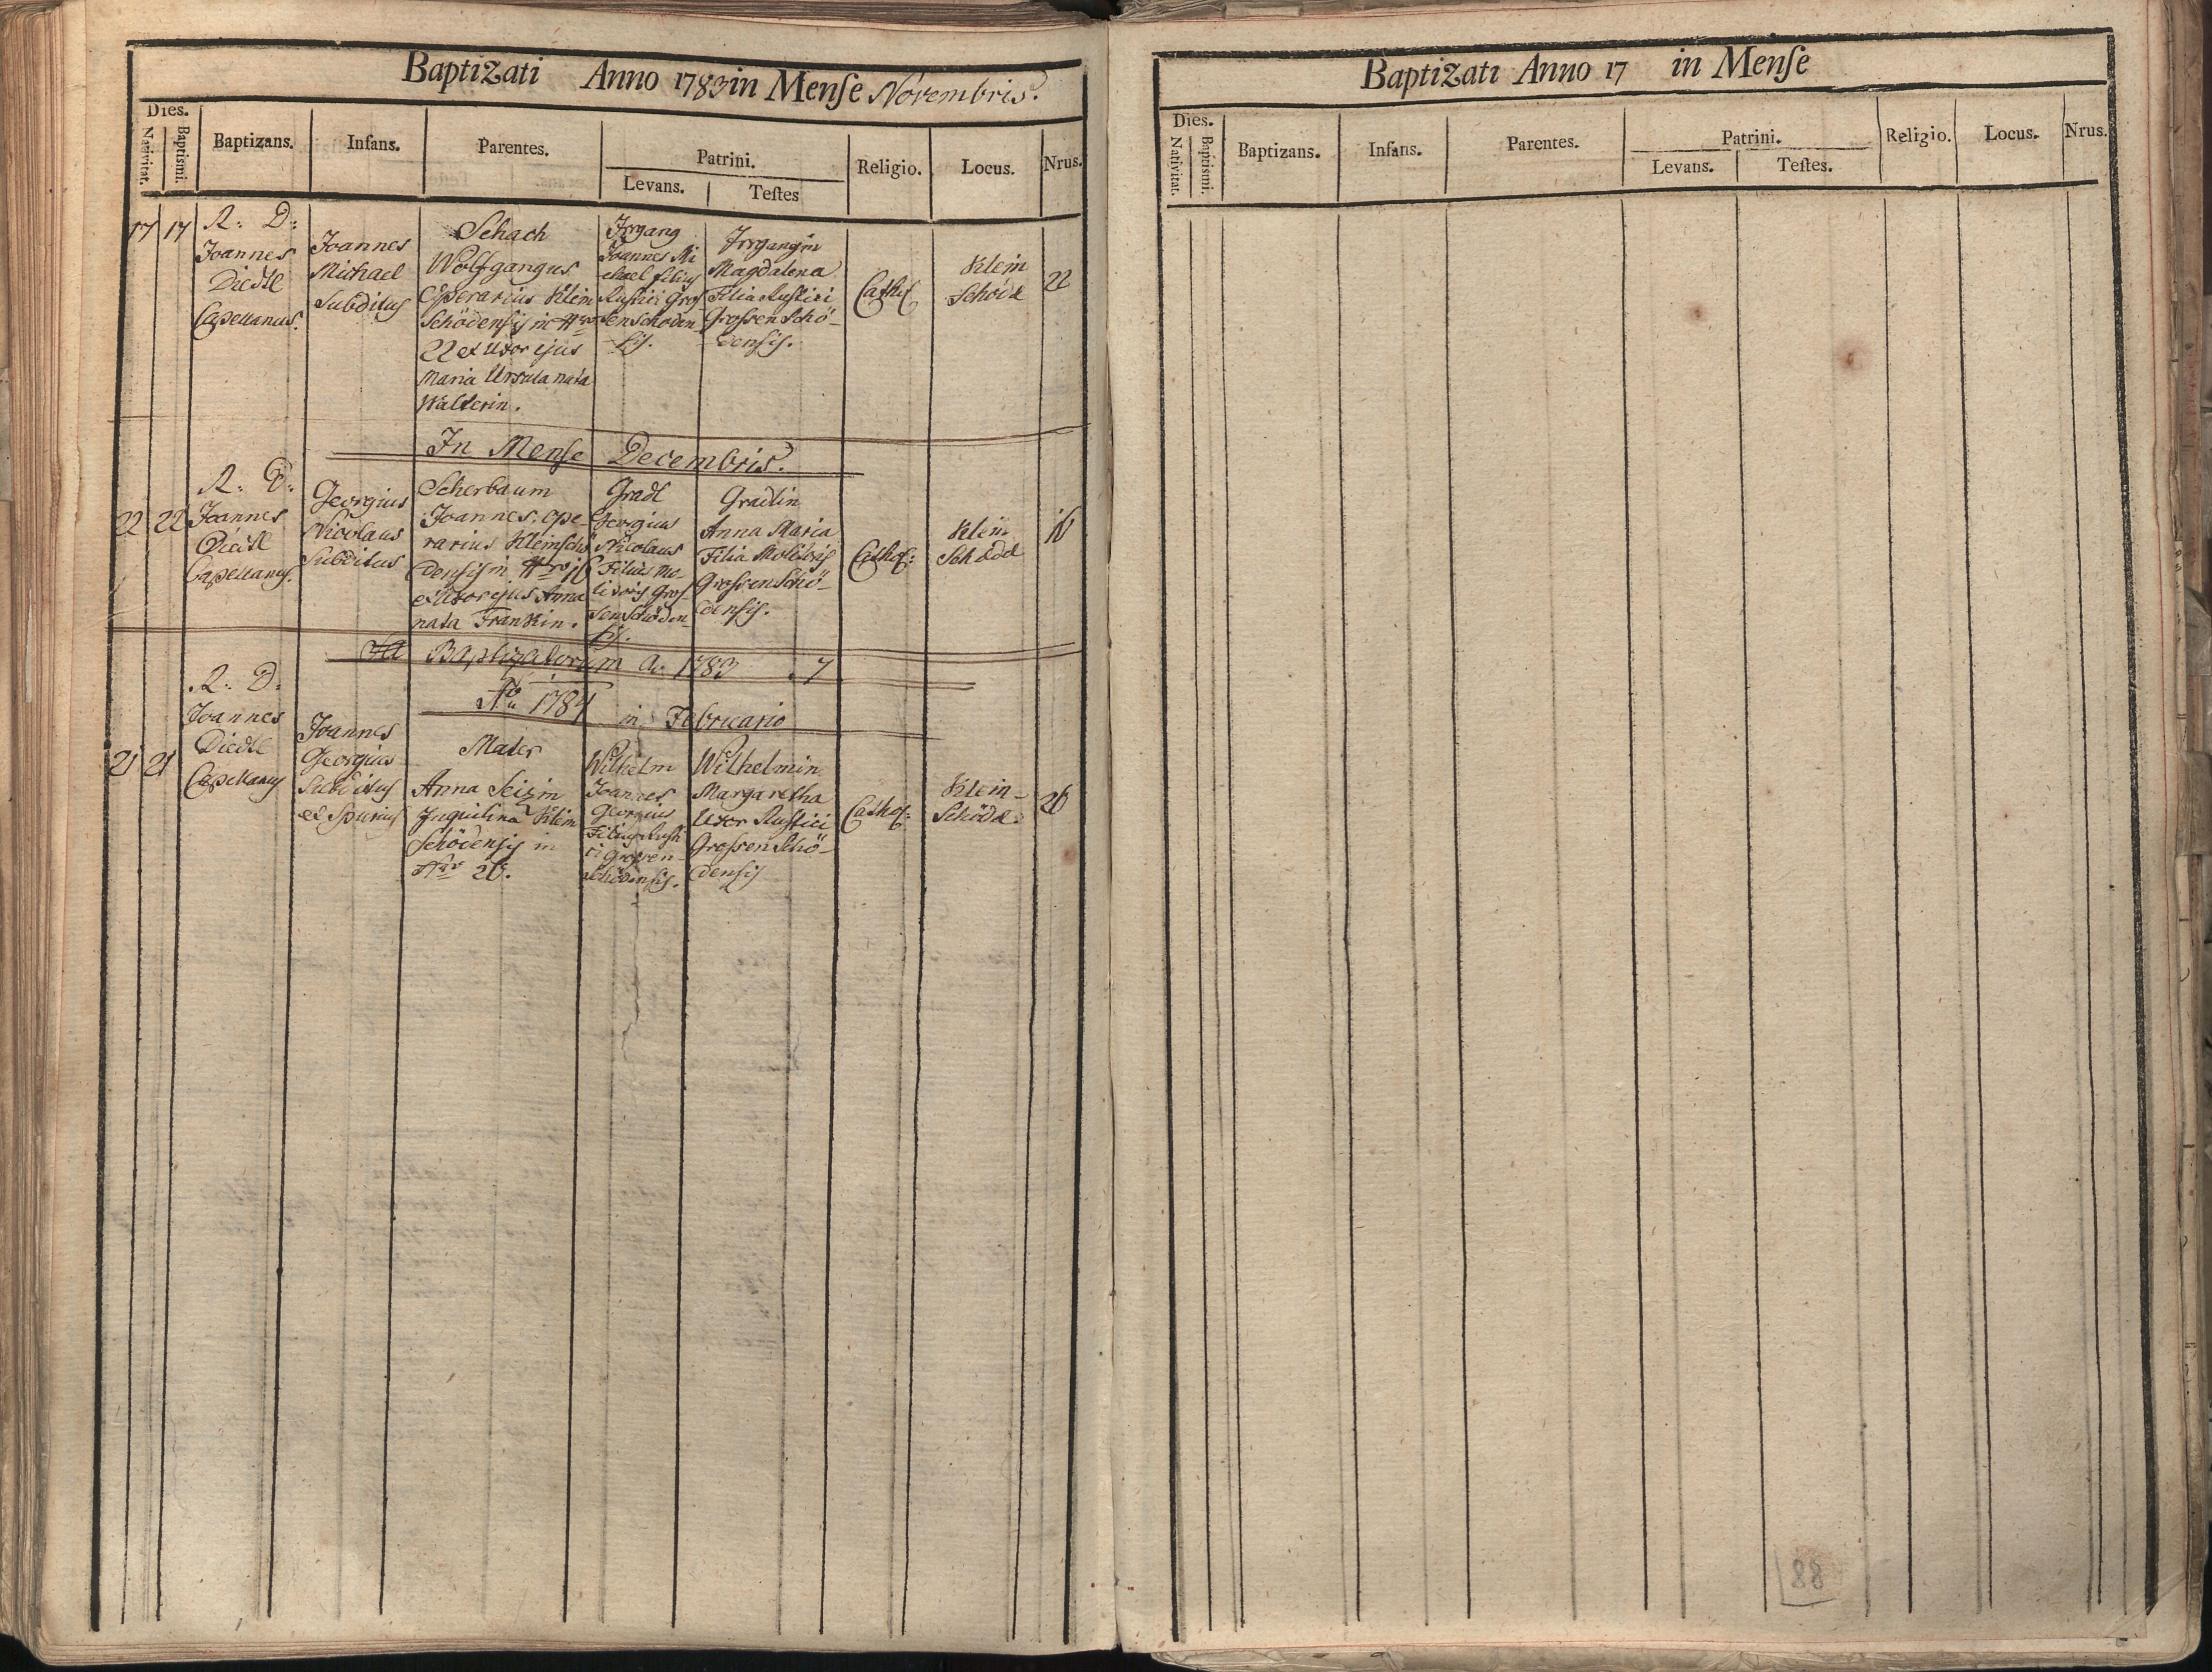 Baptizati Anno 1783 in Mense Novembris.
Dies.
Nativitat.
Baptismi.
Baptizans.
Infans.
Parentes.
Patrini.
Levans.
Testes
Religio.
Locus.
Nrus.
17
17
R: D:
Joannes
Diedl
Capellanus.
Joannes
Michael
Subditus
Schach
Wolfgangus
Operarius Klein
Schödensis in Nro
22 et Uxor ejus
Maria Ursula nata
Walterin.
Irrgang
Joannes Mi
chael filius
Rustici Gros
senschöden
sis.
Irrgangin
Magdalena
Filia Rustici
Grossen Schö-
densis.
Cathol
Klein
Schöid
22
In Mense Decembris.
22
22
R: D:
Joannes
Diedl
Capellanus.
Georgius
Nicolaus
Subditus
Scherbaum
Joannes, ope-
rarius Kleinschö
densis in Nro 16
et Uxor ejus Anna
nata Frankin.
Gradl
Georgius
Nicolaus
Filius Mo-
litoris Gros
senschöden
sis.
Gradlin
Anna Maria
Filia Molitoris
Grossen Schö-
densis.
Cathol:
Klein
Schödd
16
Baptizatorum A. 1783 . 7
Ao 1784 in Februario
21
21
R: D:
Joannes
Diedl
Capellanus
Joannes
Georgius
Subditus
et Spurius
Mater
Anna Seizin
Inquilina Klein
Schödensis in
Nro 26.
Wilhelm
Joannes
Georgius
Filius Rusti
ci Grossen-
Schödensis.
Wilhelmin
Margaretha
Uxor Rustici
Grossen Schö-
densis
Cathol:
Klein-
Schödd.
26
Baptizati Anno 17 in Mense
Dies.
Nativitat.
Baptismi.
Baptizans.
Infans.
Parentes.
Patrini.
Levans.
Testes.
Religio.
Locus.
Nrus.
88